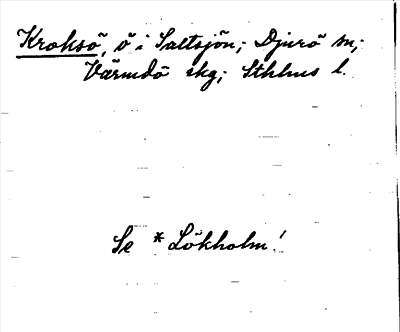 Kroksö, ö i Saltsjön; Djurö sn;
Värmdö skg; Sthlms l.
Se *Lökholm!